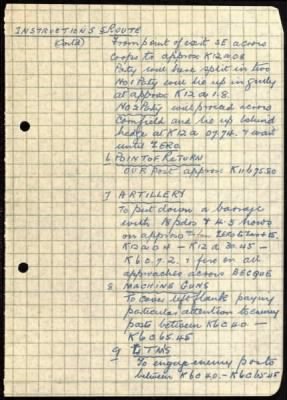 INSTRUCTIONS & ROUTE
(Contd) From point of exit SE across
Copse to approx K12a08
Party will here split in two
No1 Party will lie up in gulley
at approx K12a 1.8.
No2 Party will proceed across
Cornfield and lie up behind
hedge at K12a 07.74. & wait
until ZERO
6. POINT OF RETURN
OUR Post approx K11b75.80
7 ARTILLERY
To put down a barrage
with 18pdrs & 4.5 hows
on approx ZERO to 15.
K12a 0.4 - K12a 30.45 -
K6c.7.2. & fire on all
approaches across BECQUE
8. MACHINE GUNS
To cover left flank paying
particular attention to enemy
posts between K6c40. -
K6c65.45
9 L.TMS
To engage enemy posts
between K6c40.- K6c65.45